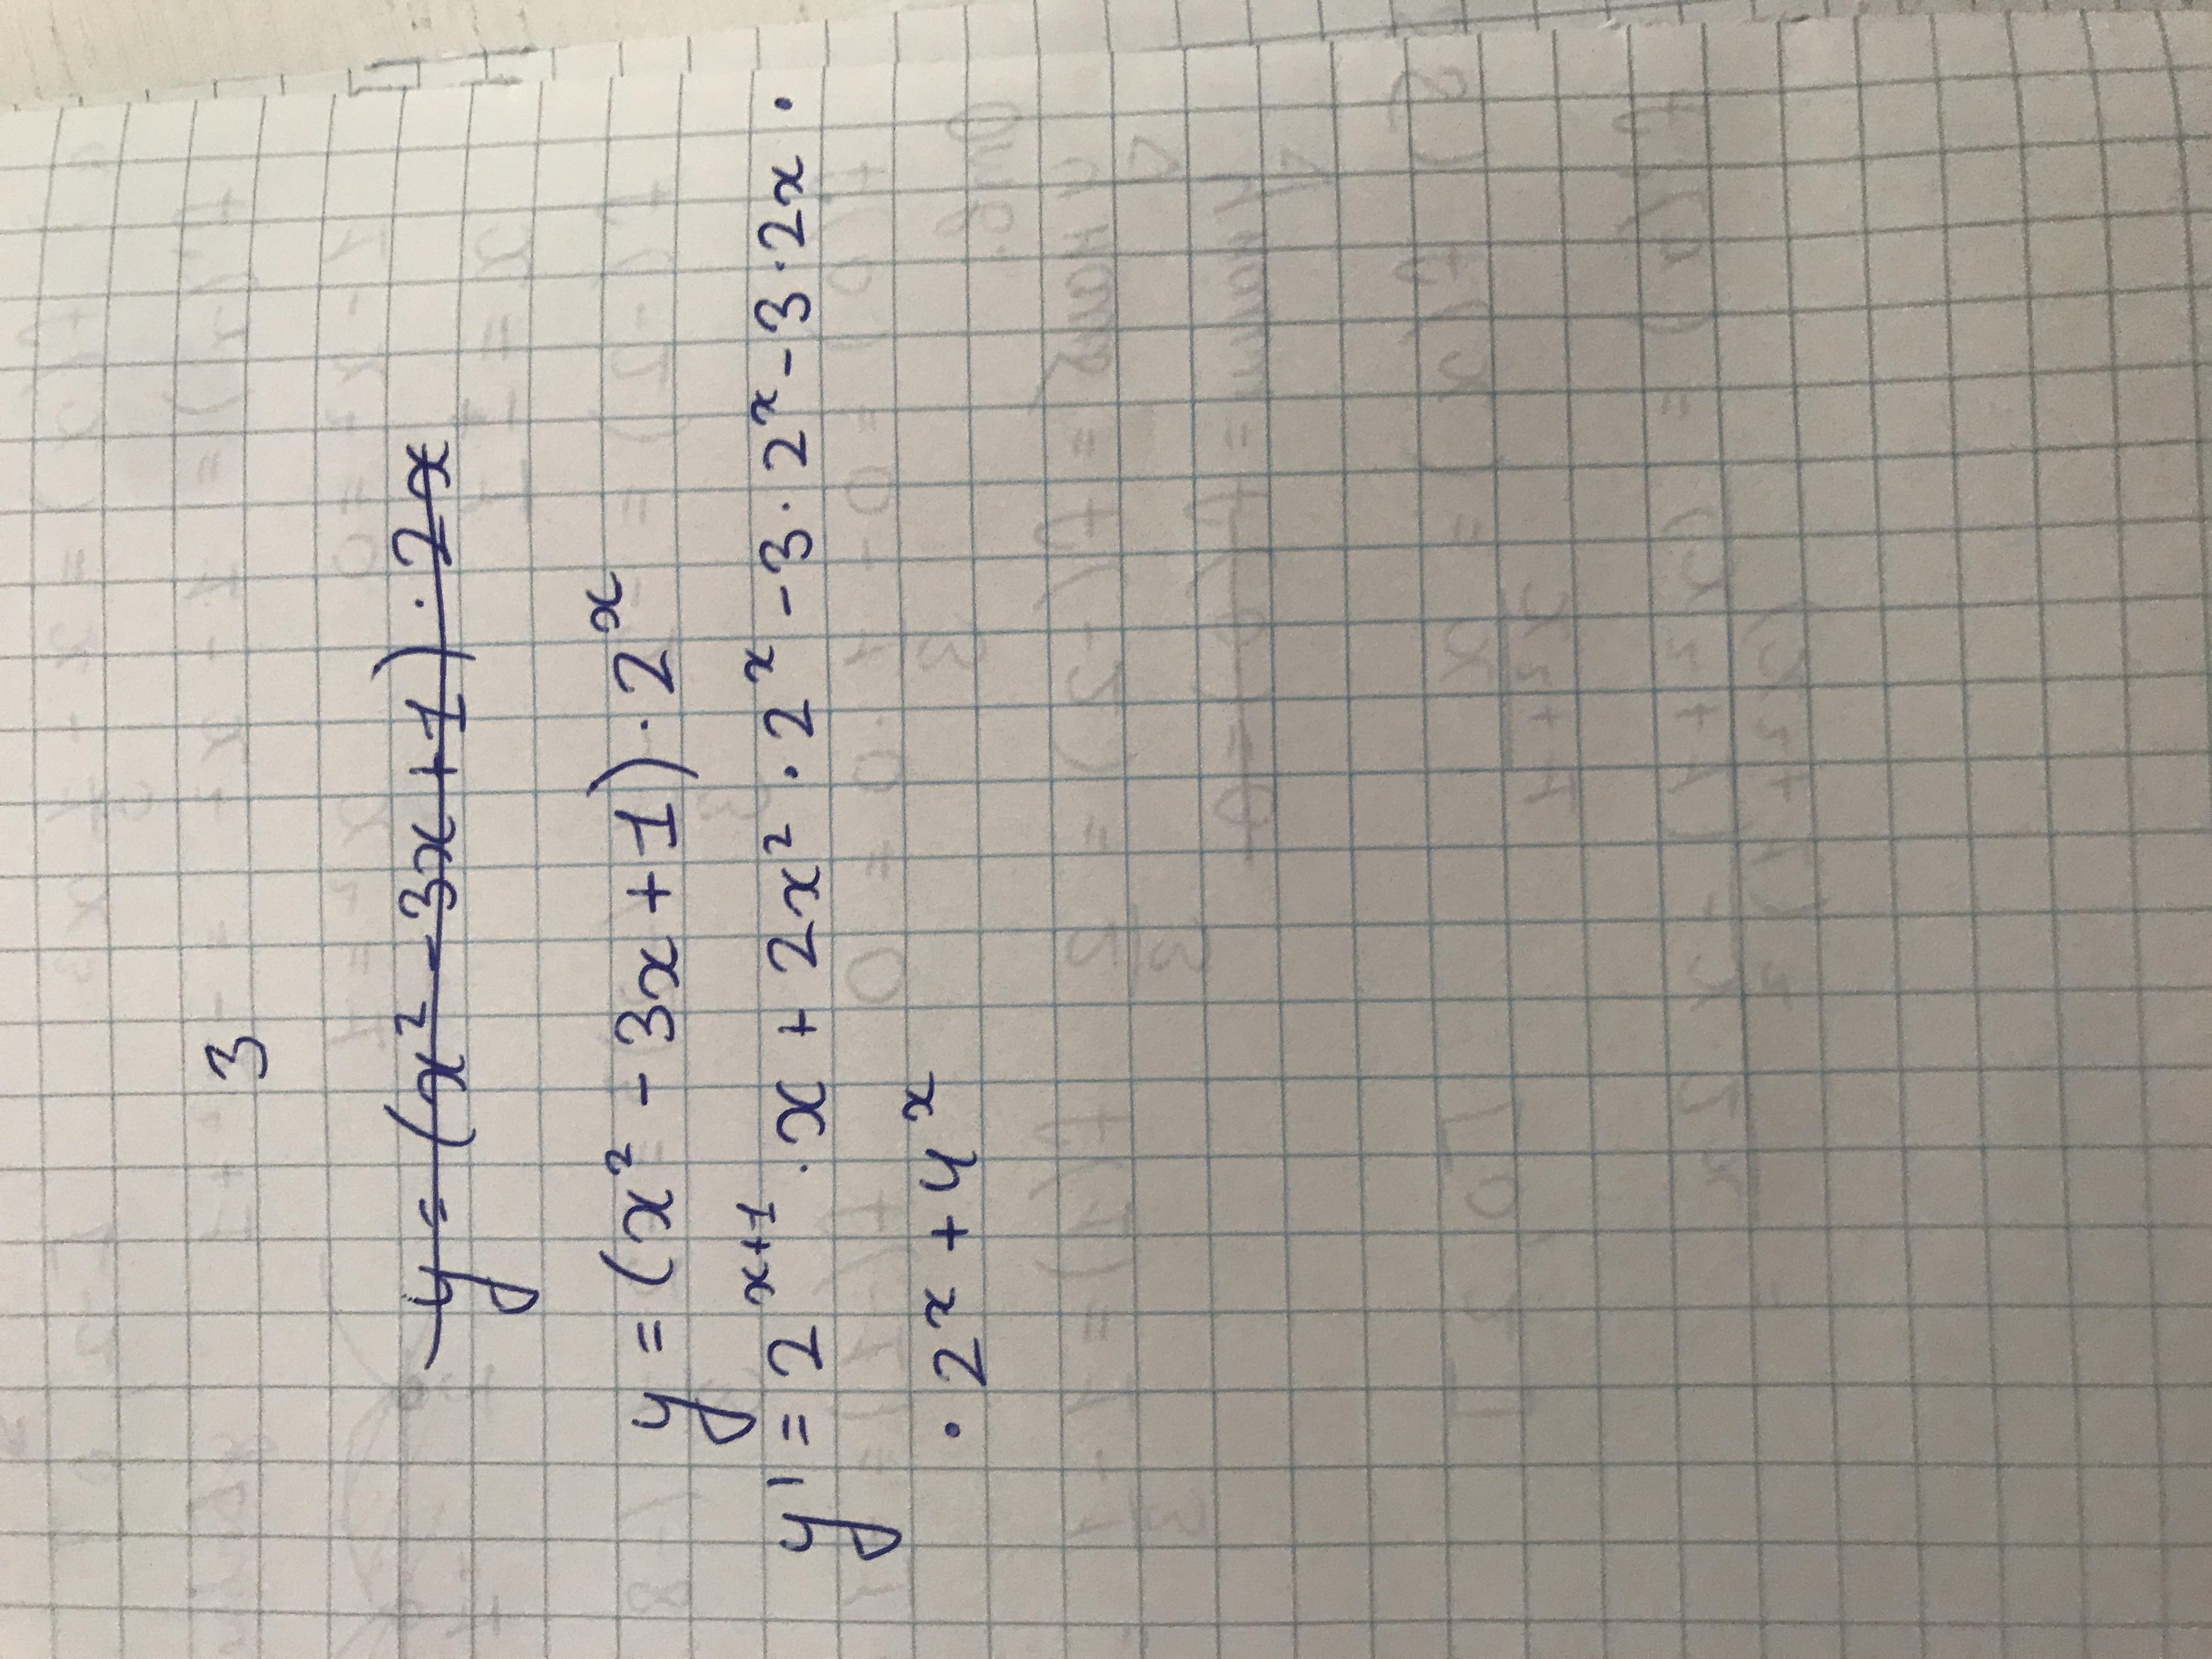 3
y = (x² - 3x + 1) · 2x
y = (x² - 3x + 1) · 2ˣ
y' = 2ˣ⁺¹ · x + 2x² · 2ˣ - 3 · 2ˣ - 3 · 2x ·
· 2ˣ + 4ˣ